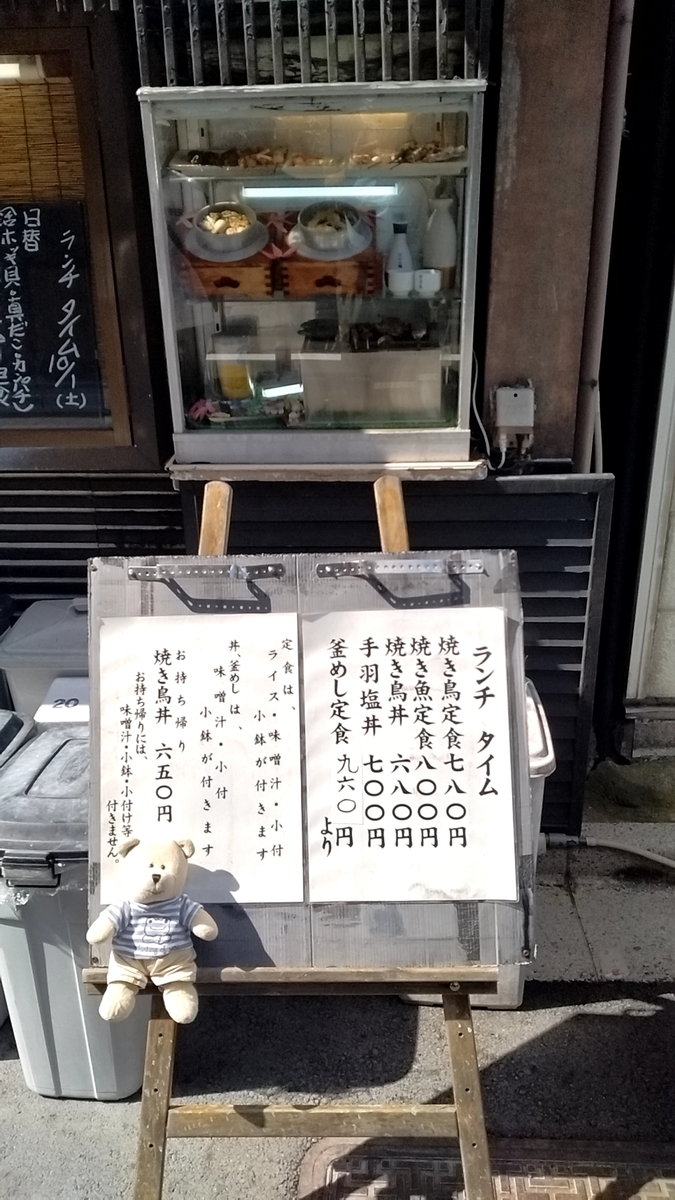 ランチ タイム
焼き鳥定食七八〇円
焼き魚定食八〇〇円
焼き鳥丼 六八〇円
手羽塩丼 七〇〇円
釜めし定食 九六〇円より
定食は、
ライス・味噌汁・小付
小鉢が付きます
丼、釜めしは、
味噌汁・小付
小鉢が付きます
お持ち帰り
焼き鳥丼 六五〇円
お持ち帰りには、
味噌汁・小鉢・小付け等
付きません。
ランチ タイム 10/1(土)
日替
20